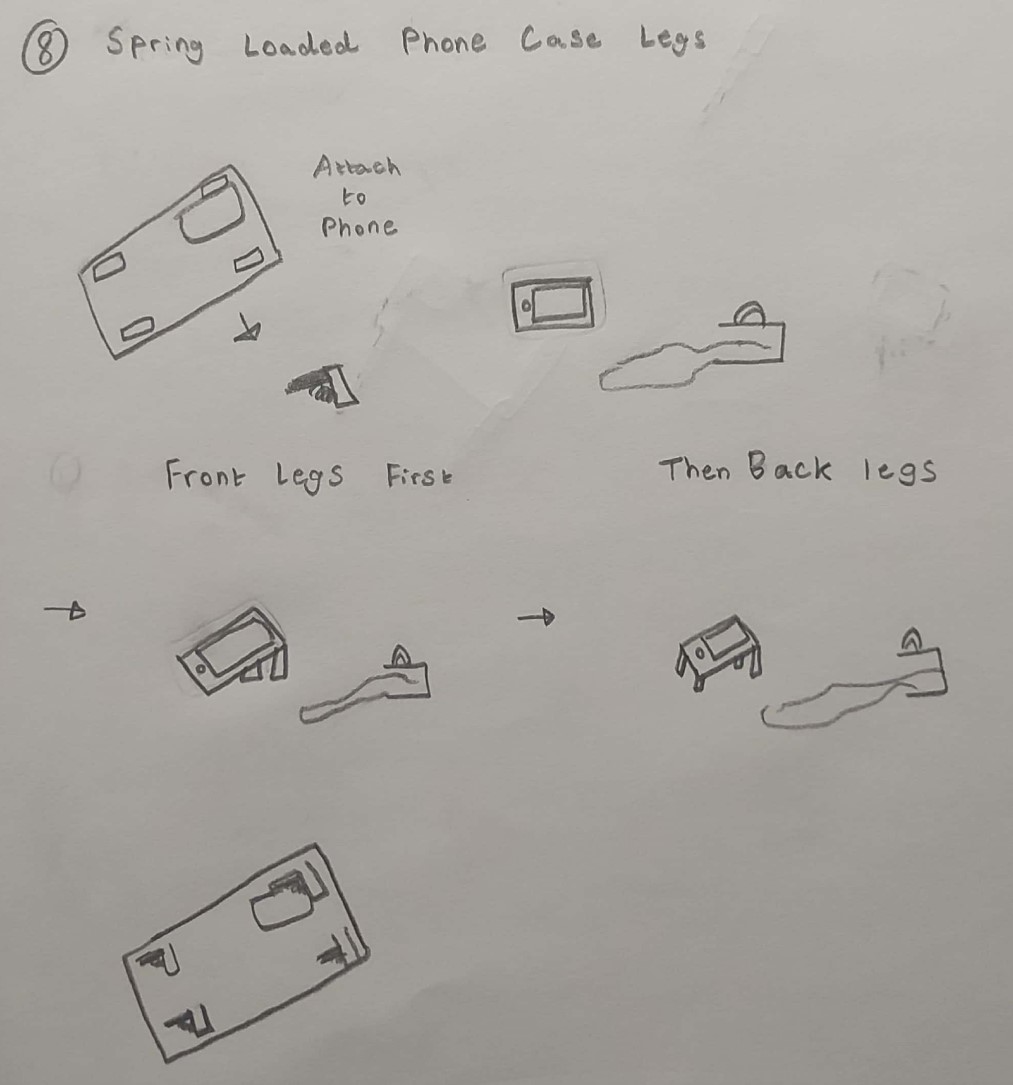 8 Spring Loaded Phone Case Legs
Attach
to
Phone
Front Legs First
Then Back legs